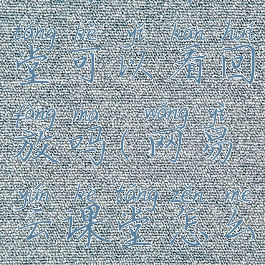 táng kě yǐ kàn huí
堂可以看回
fàng ma wǎng yì
放吗(网易
yún kè táng zěn me
云课堂怎么